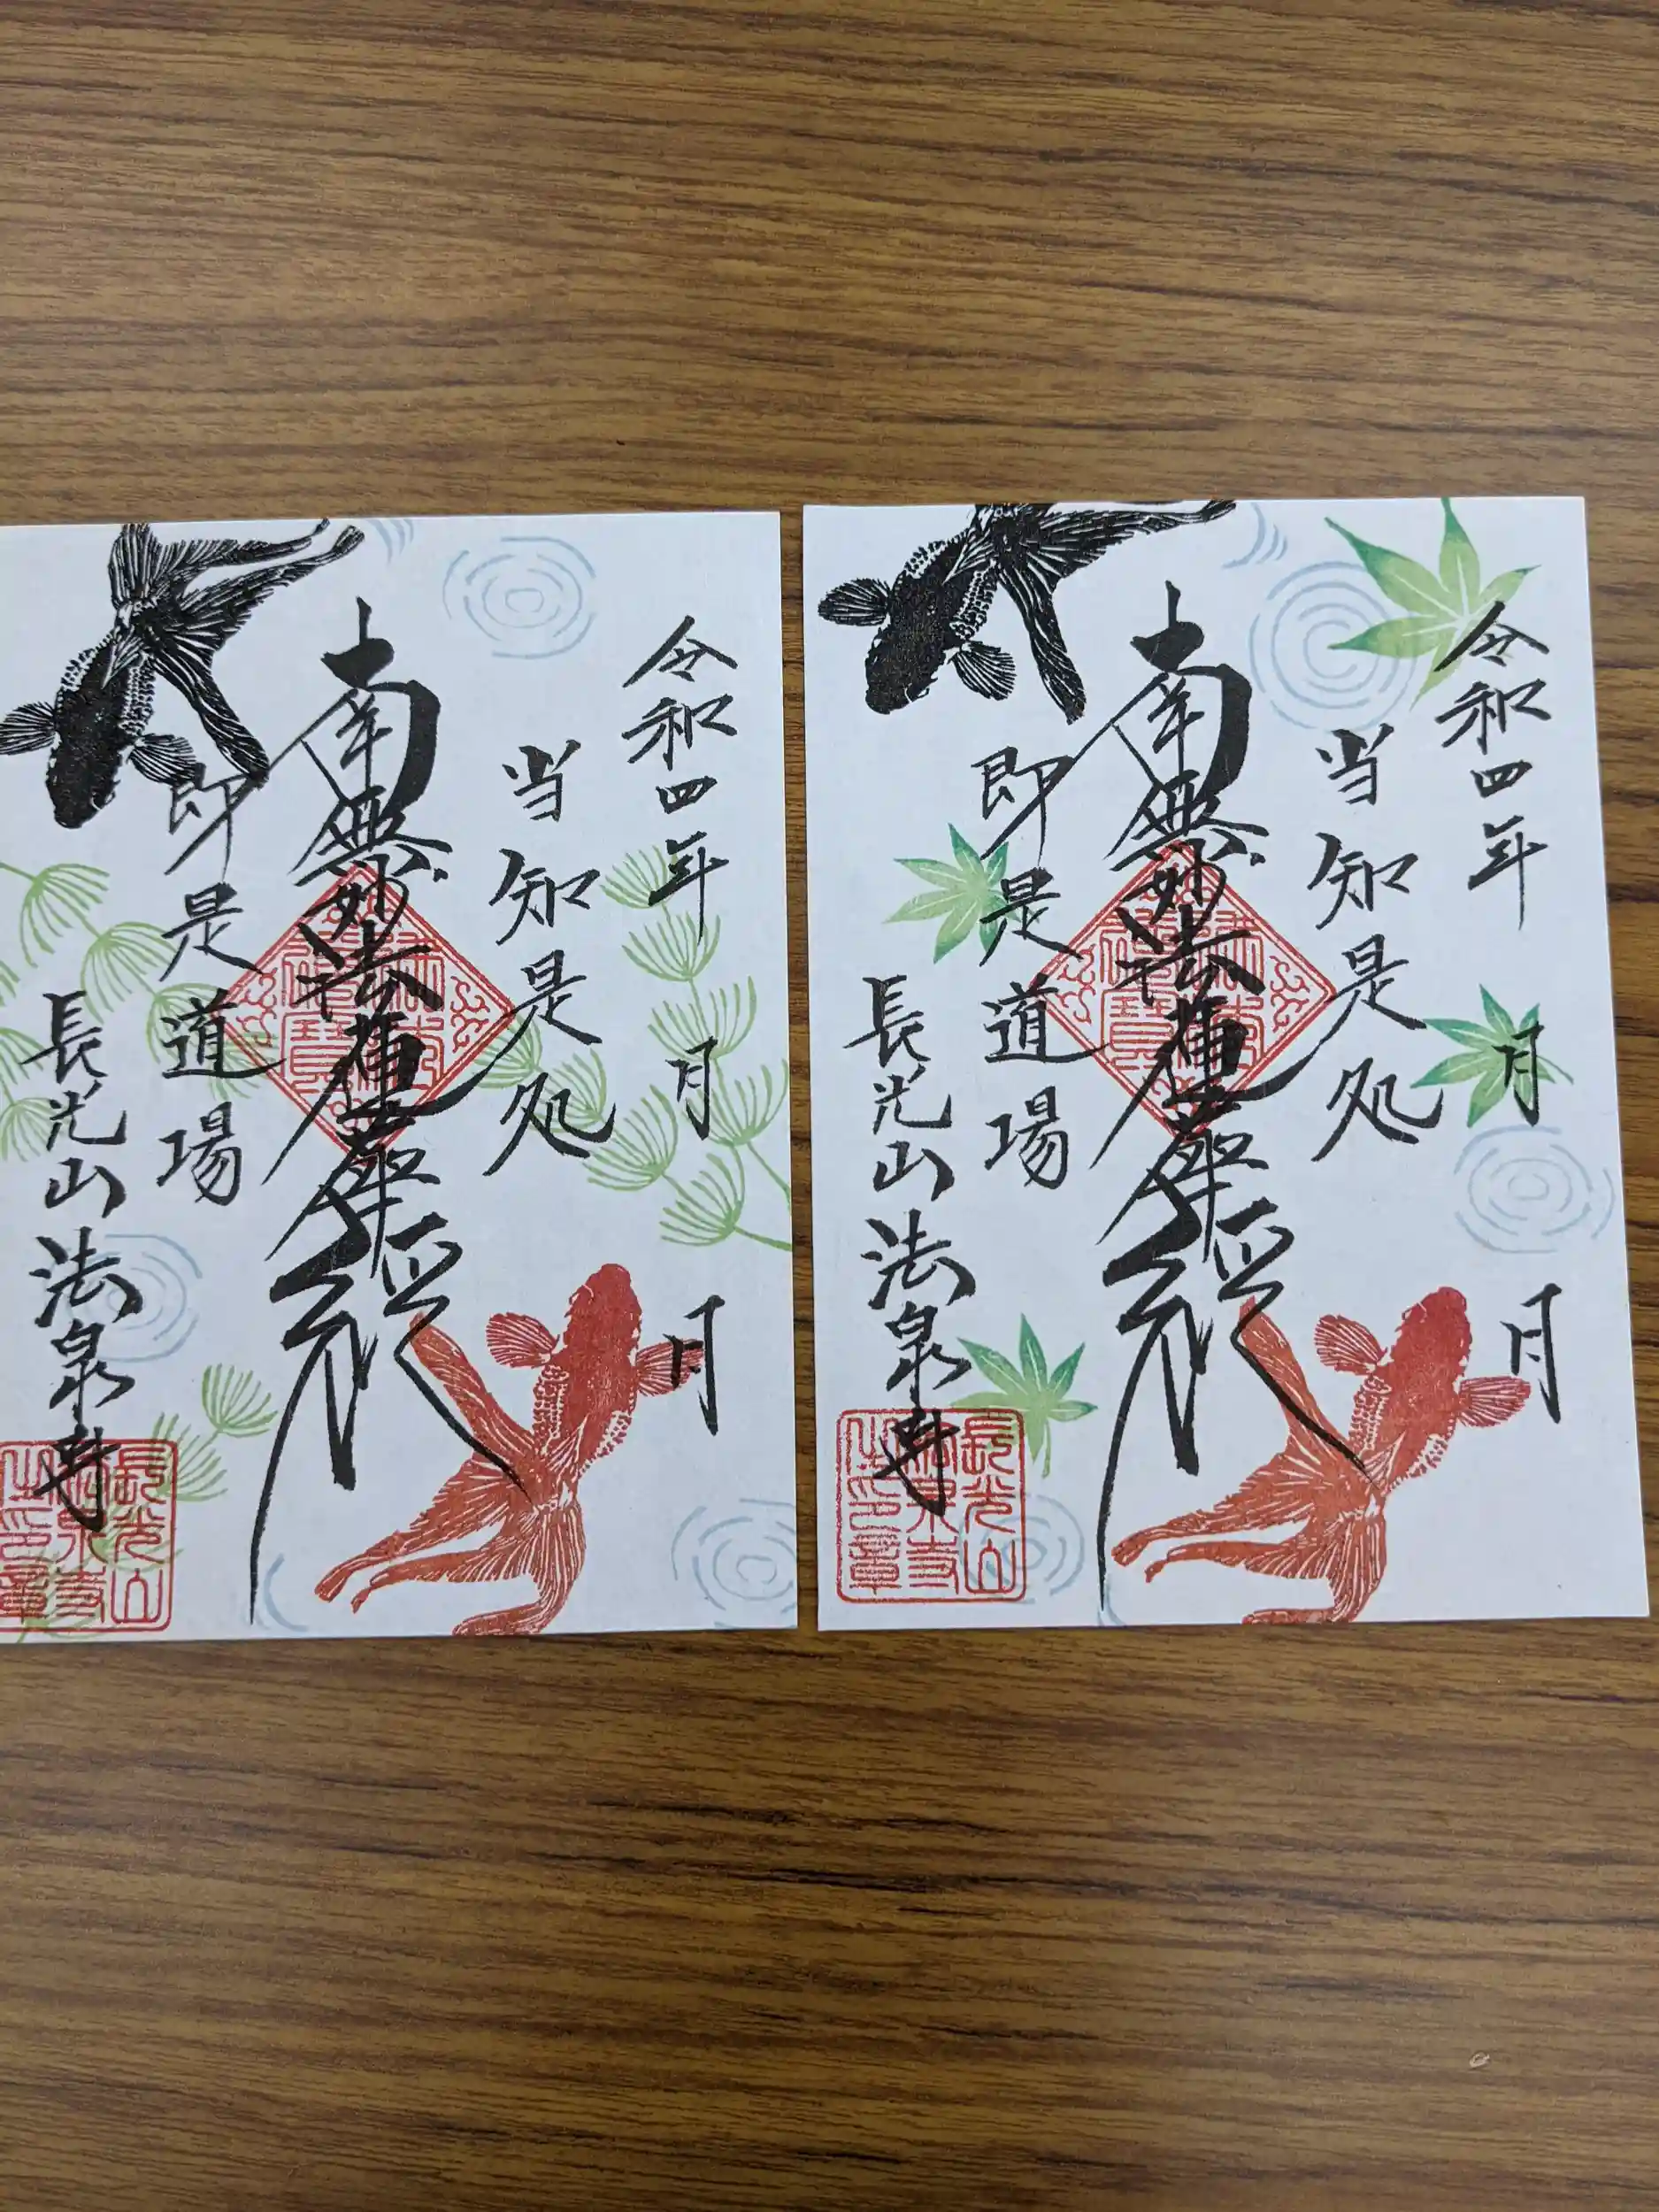 令和四年 月 月
当知是処
南無妙法蓮華経
即是道場
長光山法泉寺
長光山
法泉寺
之印章
令和四年 月 月
当知是処
南無妙法蓮華経
即是道場
長光山法泉寺
長光山
法泉寺
之印章